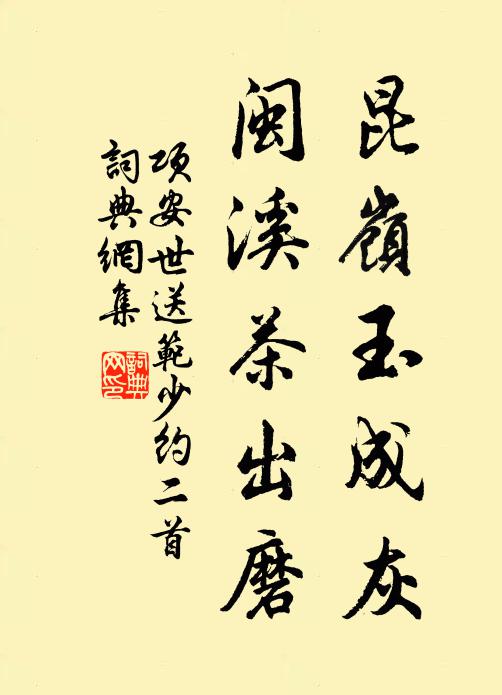 昆嶺玉成灰
閩溪茶出磨
項安世送範少約二首
詞典網集
詞典网印